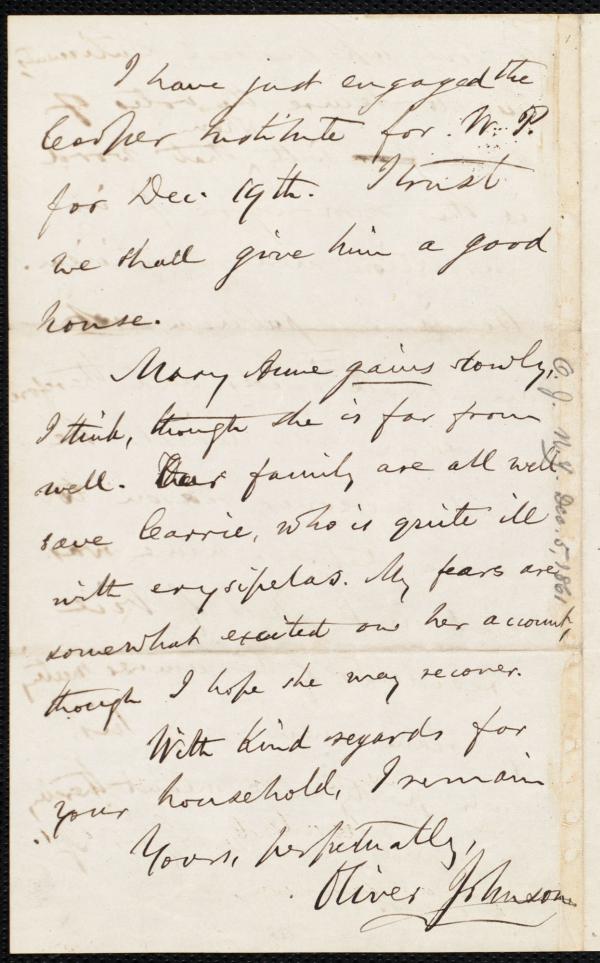 I have just engaged the
Cooper Institute for W. P.
for Dec. 19th. I trust
we shall give him a good
house.
Mary Anne gains slowly,
I think, though she is far from
well. Our family are all well
save Carrie, who is quite ill
with erysipelas. My fears are
somewhat excited on her account,
though I hope she may recover.
With kind regards for
your household, I remain
Yours, perpetually,
Oliver Johnson
O. J. N.Y. Dec. 5, 1861